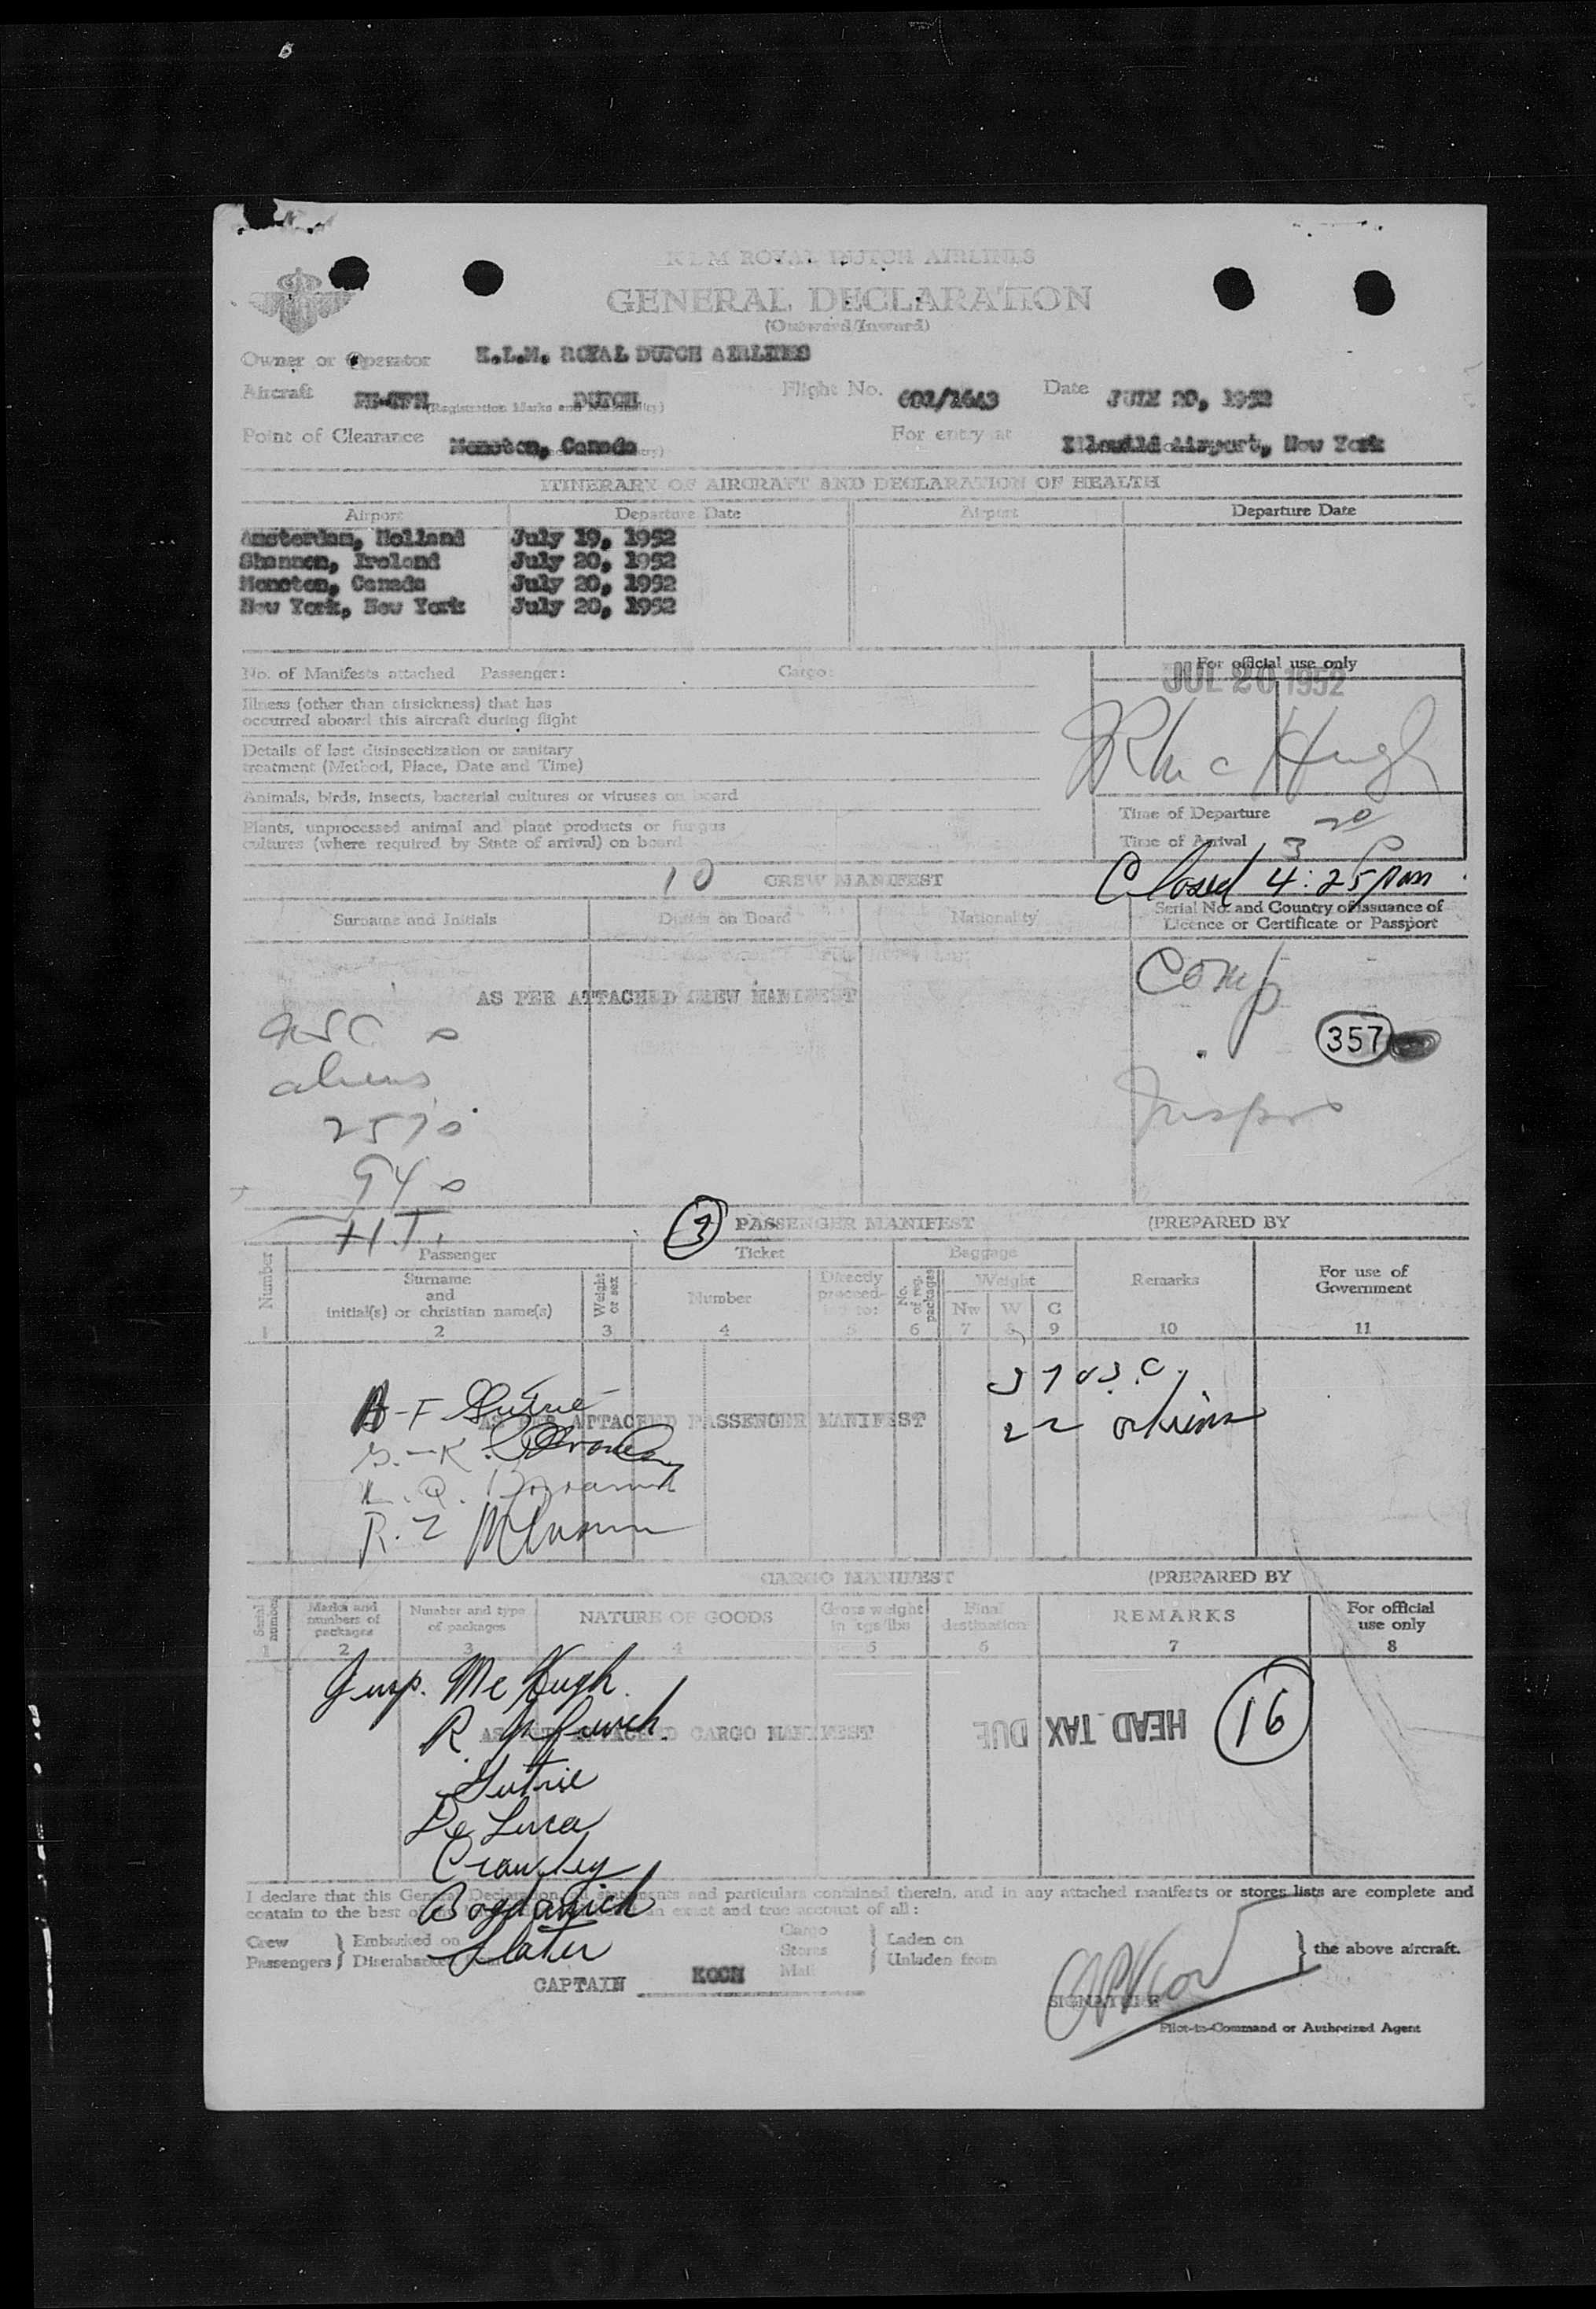 KLM ROYAL DUTCH AIRLINES
GENERAL DECLARATION
(Outward/Inward)
Owner or Operator K.L.M. ROYAL DUTCH AIRLINES
Aircraft DUTCH Flight No. Date JULY 20, 1952
(Registration Marks and Nationality)
Point of Clearance Moncton, Canada For entry at Idlewild Airport, New York
ITINERARY OF AIRCRAFT AND DECLARATION OF HEALTH
Airport Departure Date Airport Departure Date
Amsterdam, Holland July 19, 1952
Shannon, Ireland July 20, 1952
Moncton, Canada July 20, 1952
New York, New York July 20, 1952
No. of Manifests attached Passenger: Cargo:
For official use only
JUL 20 1952
Illness (other than airsickness) that has
occurred aboard this aircraft during flight
Mc Hugh
Details of last disinsectization or sanitary
treatment (Method, Place, Date and Time)
Animals, birds, insects, bacterial cultures or viruses on board
Plants, unprocessed animal and plant products or fungus
cultures (where required by State of arrival) on board
Time of Departure
Time of Arrival 3 20 P
10 CREW MANIFEST
Closed 4:25 pm
Surname and Initials Duties on Board Nationality Serial No. and Country of Issuance of
Licence or Certificate or Passport
AS PER ATTACHED CREW MANIFEST
Comp
357
aliens
H.T.
3 PASSENGER MANIFEST (PREPARED BY
Number Passenger Ticket Baggage Remarks For use of
Government
Surname
and
initial(s) or christian name(s)
Weight
or sex
Number
Directly
proceed-
ing to:
No.
of reg.
packages
Weight
Nw W C
1 2 3 4 5 6 7 8 9 10 11
AS PER ATTACHED PASSENGER MANIFEST
22
CARGO MANIFEST (PREPARED BY
Serial
number
Marks and
numbers of
packages
Number and type
of packages
NATURE OF GOODS
Gross weight
in kgs/lbs
Final
destination
REMARKS
For official
use only
1 2 3 4 5 6 7 8
Insp. Mc Hugh.
AS PER ATTACHED CARGO MANIFEST
HEAD TAX DUE
16
Gutrie
De Luca
Crawley
Bogdanich
Slater
I declare that this General Declaration, all statements and particulars contained therein, and in any attached manifests or stores lists are complete and
contain to the best of an exact and true account of all:
Crew
Passengers
Embarked on
Disembarked
Cargo
Stores
Mail
Laden on
Unladen from
the above aircraft.
CAPTAIN KOCH
SIGNATURE
Pilot-in-Command or Authorized Agent